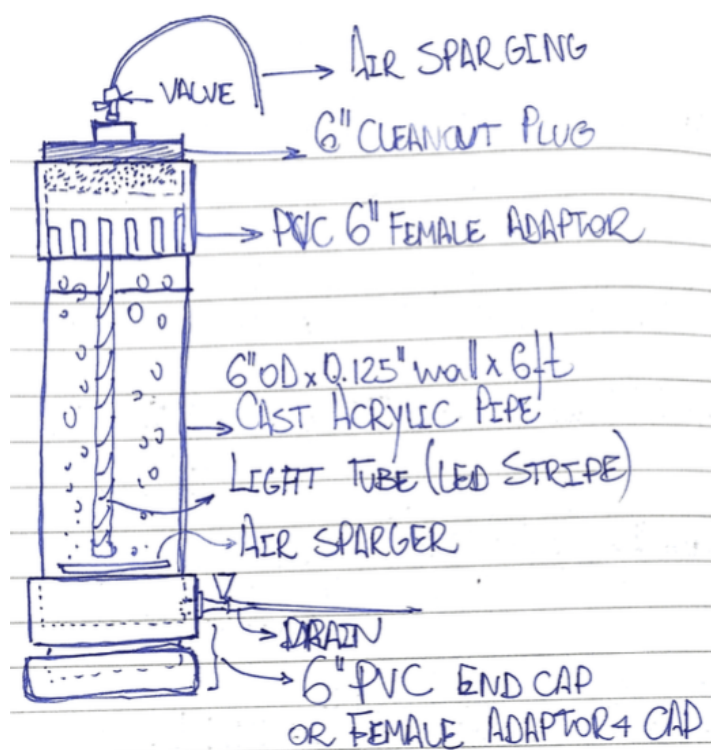 AIR SPARGING
VALVE
6" CLEANOUT PLUG
PVC 6" FEMALE ADAPTOR
6"OD x 0.125" wall x 6ft
CAST ACRYLIC PIPE
LIGHT TUBE (LED STRIPE)
AIR SPARGER
DRAIN
6" PVC END CAP
OR FEMALE ADAPTOR + CAP